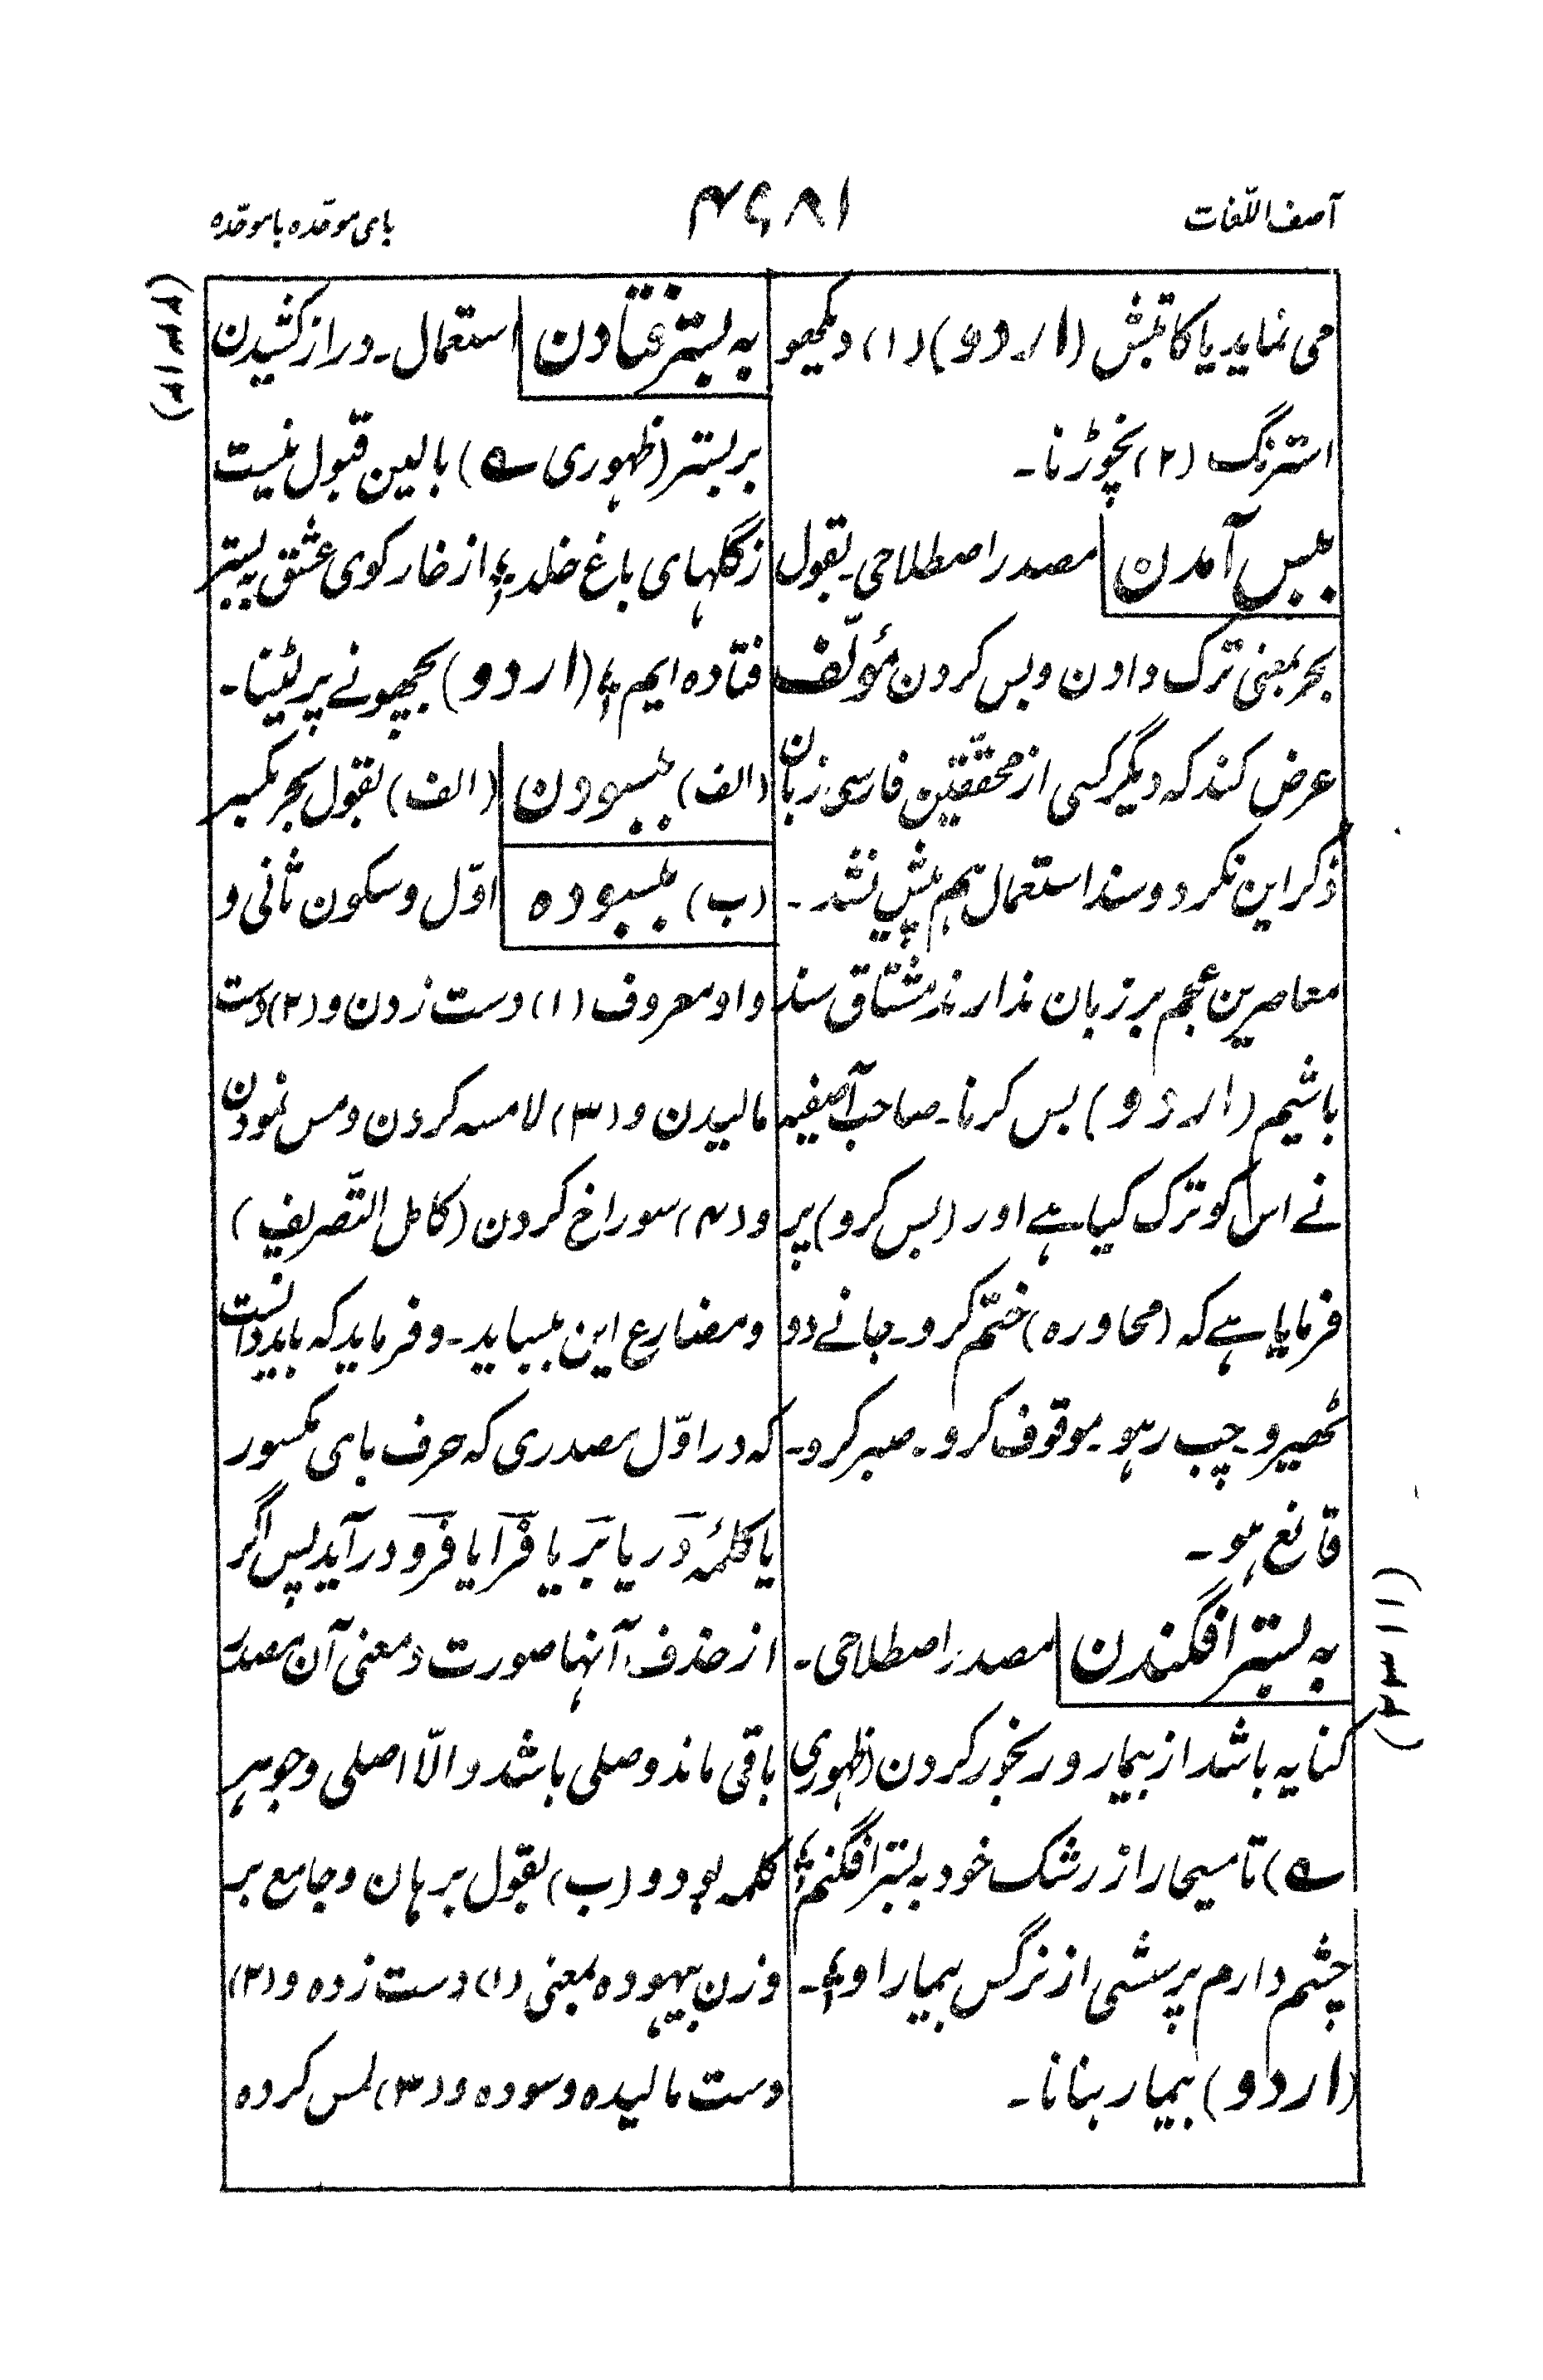 آصف اللّغات
۴۶۸۱
بای موحّده با موحّده
می نماید یا کاتبش (اردو) (۱) دیکھو
استرنگ (۲) نچوڑنا۔
ببس آمدن مصدر اصطلاحی۔ بقول
بحر بمعنی ترک دادن و بس کردن مؤلّف
عرض کند کہ دیگر کسی از محققّین فارسی زبان
ذکر این نکرد و سند استعمال ہم پیش نشد۔
معاصرین عجم بر زبان ندارند مشتاق سند
باشیم (اردو) بس کرنا۔ صاحب آصفیہ
نے اس کو ترک کیا ہے اور (بس کرو) پر
فرمایا ہے کہ (محاورہ) ختم کرو۔ جانے دو
ٹھیرو۔ چپ رہو۔ موقوف کرو۔ صبر کرو۔
قانع ہو۔
بہ بستر افگندن مصدر اصطلاحی۔
کنایہ باشد از بیمار و رنجور کردن (ظہوری
ے) تا مسیحا را ز رشک خود بہ بستر افگنم ؛
چشم دارم پرسشی از نرگس بیمار او ؛۔
(اردو) بیمار بنانا۔
(۲۳۱۱)
بہ بستر فتادن استعمال۔ دراز کشیدن
بر بستر (ظہوری ے) بالین قبول نیست
ز گلہای باغ خلد ؛ از خار کوی عشق بہ بستر
فتادہ ایم ؛ (اردو) بچھونے پر لیٹنا۔
(الف) ببسودن (الف) بقول بحر بکسر
(ب) ببسودہ اوّل و سکون ثانی و
واو معروف (۱) دست زدن و (۲) دست
مالیدن و (۳) لامسہ کردن و مس نمودن
و (۴) سوراخ کردن (کامل التّصریف)
و مضارع این ببساید۔ و فرماید کہ باید دانست
کہ در اوّل مصدری کہ حرف بای مکسور
یا کلمۂ دَر یا بَر یا فَرا یا فَرو درآید پس اگر
از حذف آنہا صورت و معنی آن مصدر
باقی ماند وصلی باشد و الّا اصلی و جوہر
کلمہ بود و (ب) بقول برہان و جامع بر
وزن بیہودہ بمعنی (۱) دست زدہ و (۲)
دست مالیدہ و سودہ و (۳) لمس کردہ
(۲۳۱۲)